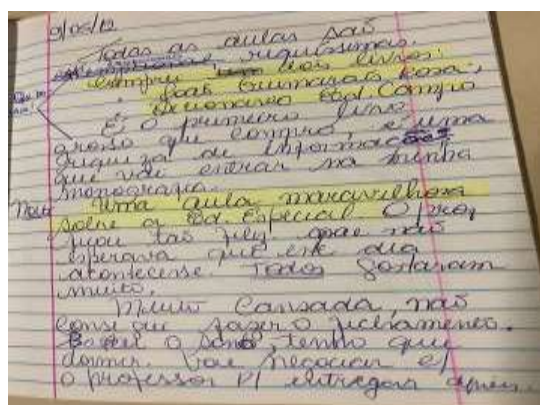 9/05/12
Todas as aulas são
riquíssimas.
comprei dois livros:
Dicionário Ed. Campo
É o primeiro livro
grosso que comprei, é uma
riqueza de informações
que vai entrar na minha
monografia.
Noite Uma aula maravilhosa
sobre a Ed. Especial O prof
ficou tão feliz que não
esperava que este dia
acontecesse. Todos gostaram
muito.
Muito Cansada, não
consegui fazer o fichamento.
o sono, tenho que
dormir. Vou negociar c/
o professor p/ entregar